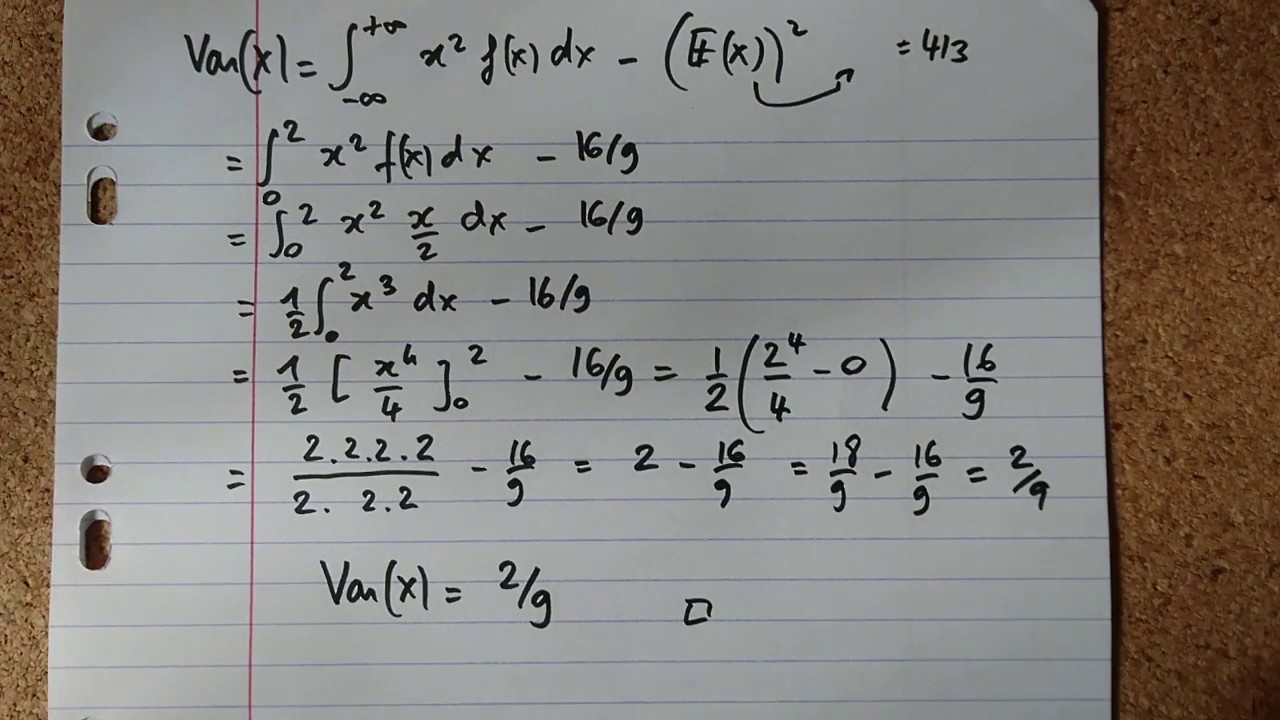 Var(x) = ∫_{-∞}^{+∞} x² f(x) dx - (E(x))² = 4/3
= ∫_0^2 x² f(x) dx - 16/9
= ∫_0^2 x² x/2 dx - 16/9
= 1/2 ∫_0^2 x³ dx - 16/9
= 1/2 [x⁴/4]_0^2 - 16/9 = 1/2 (2⁴/4 - 0) - 16/9
= 2.2.2.2/2. 2.2 - 16/9 = 2 - 16/9 = 18/9 - 16/9 = 2/9
Var(x) = 2/9 □